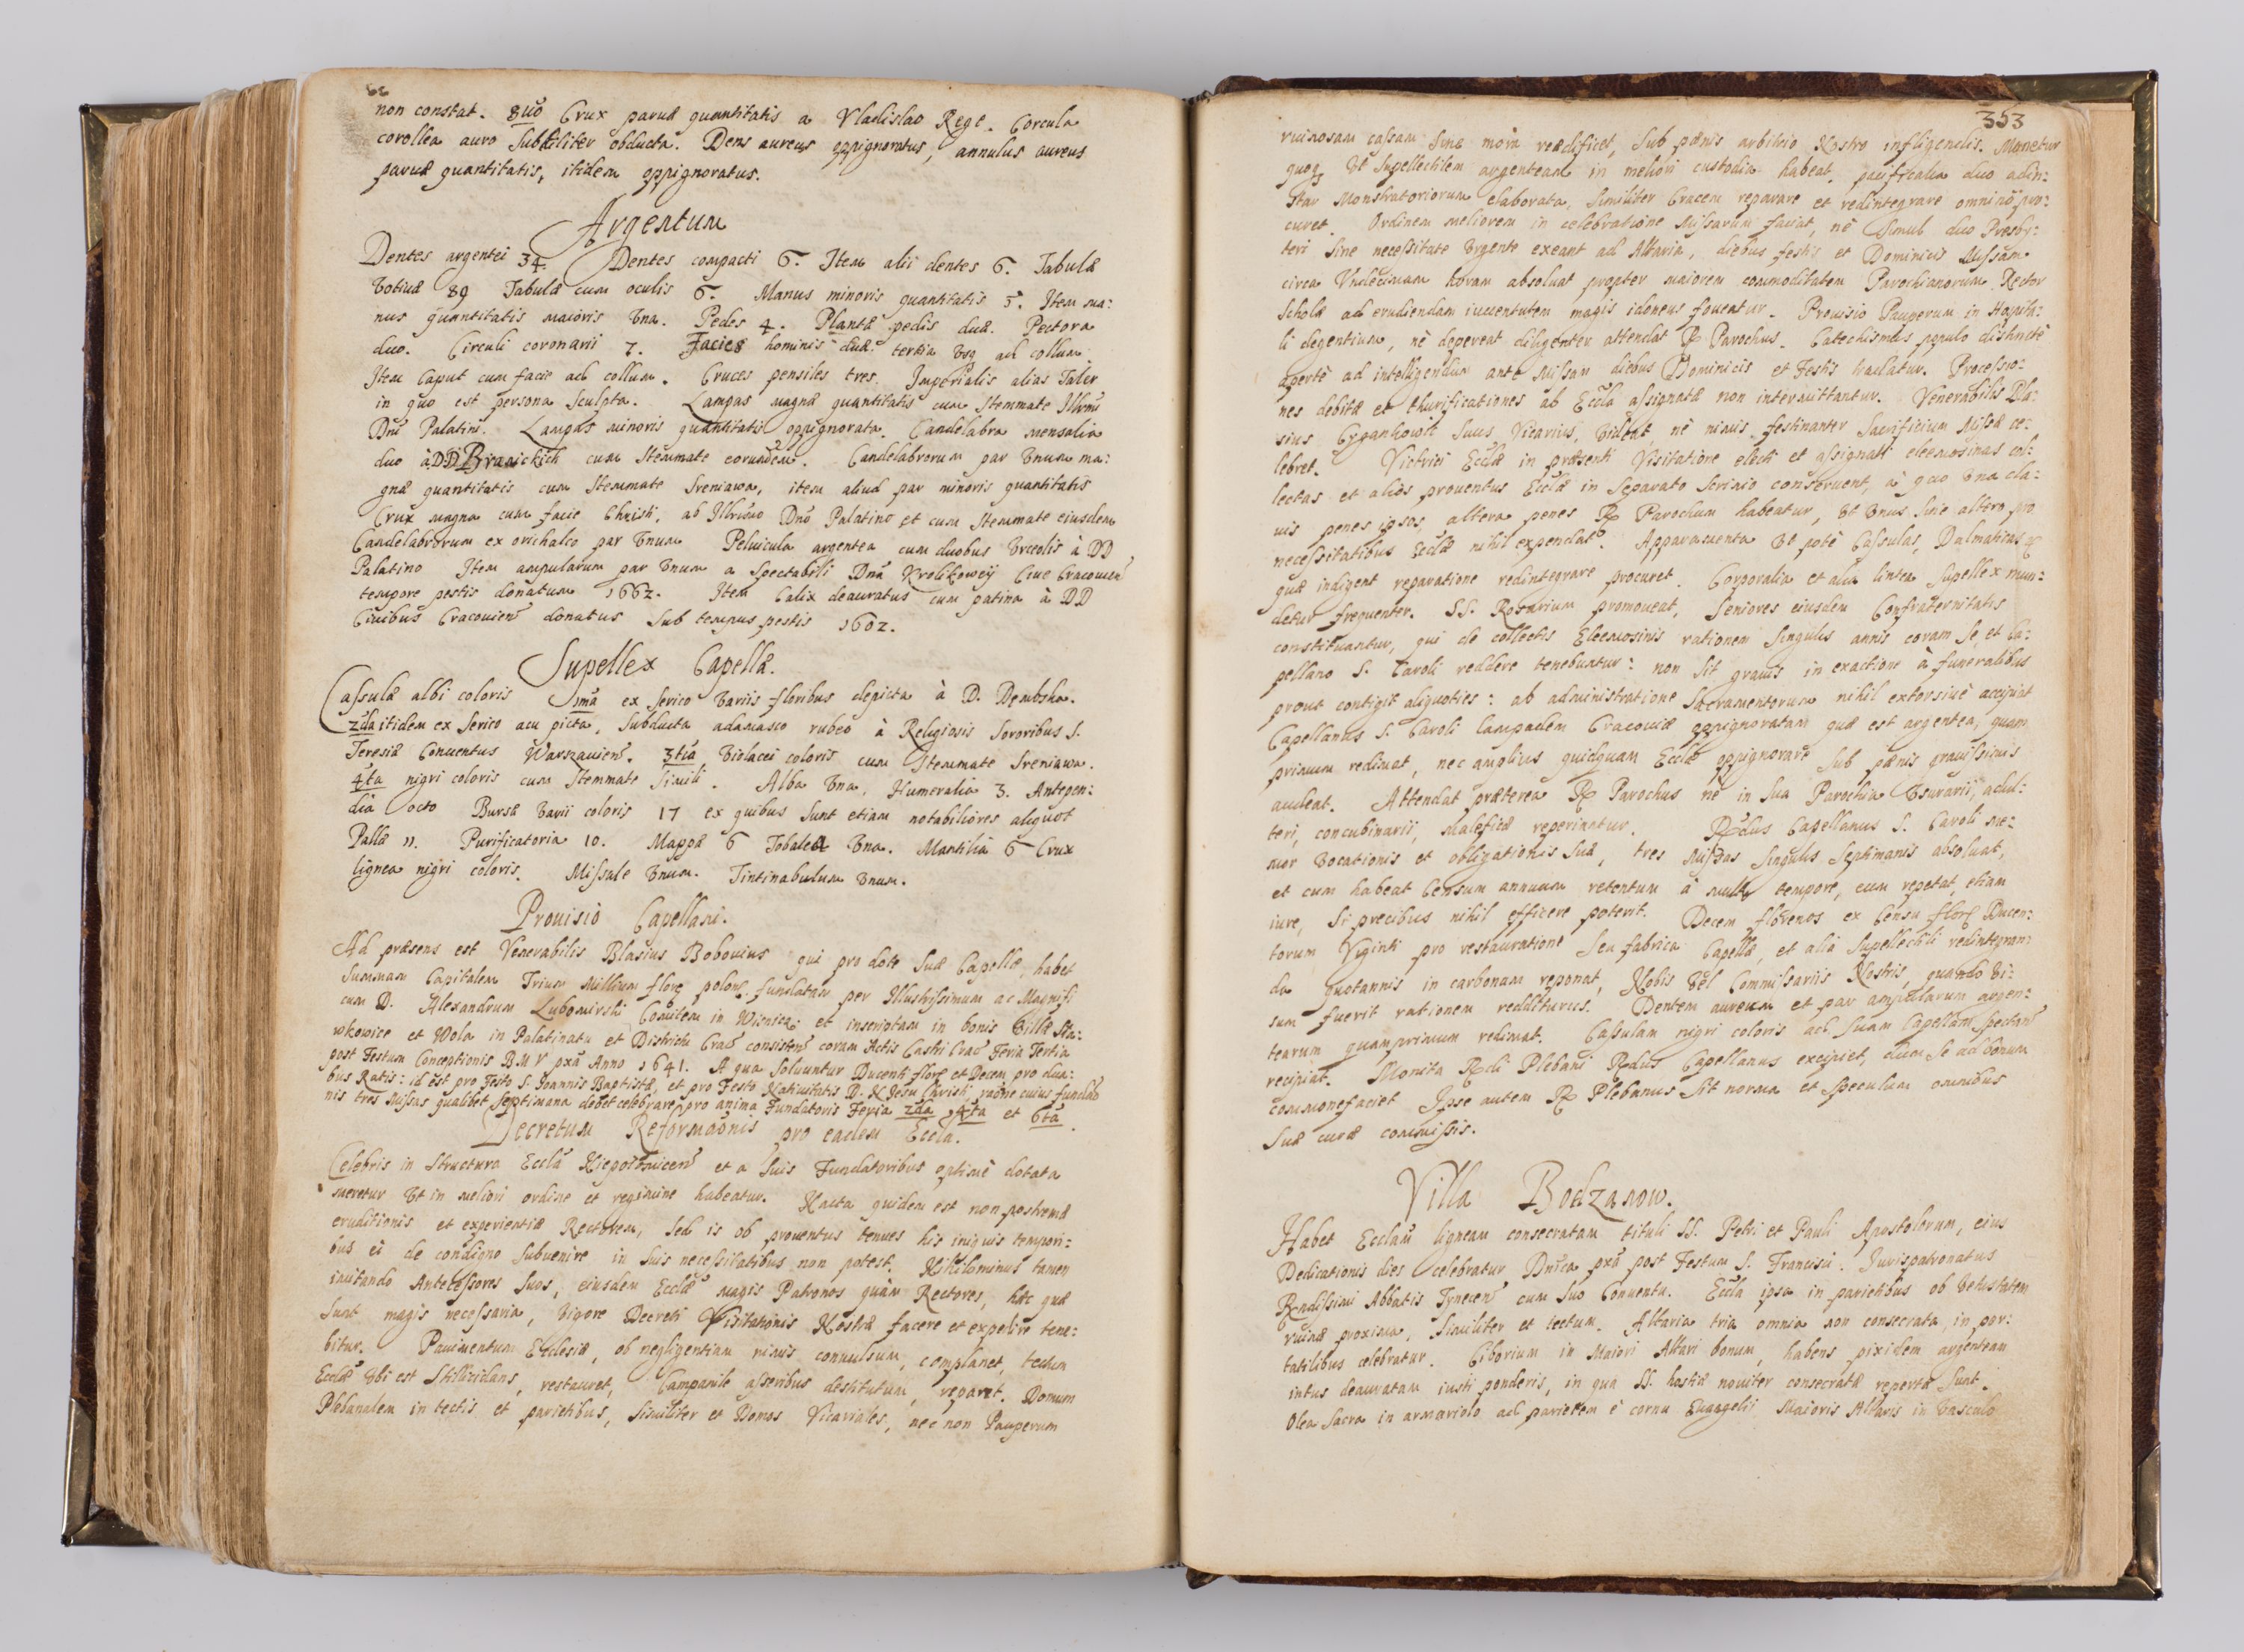 non constat. 8uo Crux paruæ quantitatis a Vladislao Rege. Corcula
corollea auro subtiliter obducta. Dens aureus oppignoratus, annulus aureus
paruæ quantitatis, itidem oppignoratus.
Argentum
Dentes argentei 34. Dentes compacti 6. Item alii dentes 6. Tabulæ
votiuæ 89 Tabulæ cum oculis 6. Manus minoris quantitatis 5. Item ma:
nus quantitatis maioris vna. Pedes 4. Plantæ pedis duæ. Pectora
duo. Circuli coronarii 7. Facies hominis duæ tertia vsq ad collum.
Item Caput cum facie ad collum. Cruces pensiles tres. Imperialis alias Taler
in quo est persona sculpta. Lampas magnæ quantitatis cum stemmate Illrmi
Dni Palatini. Lampas minoris quantitatis oppignorata. Candelabra mensalia
duo à DD Branickich cum stemmate eorundem. Candelabrorum par vnum ma:
gnæ quantitatis cum stemmate Sreniawa, item aliud par minoris quantitatis
Crux magna cum facie Christi, ab Illrmo Dno Palatino et cum stemmate eiusdem
Candelabrorum ex orichalco par vnum Peluicula argentea cum duobus vrceolis à DD
Palatino Item ampularum par vnum a Spectabili Dna Krolikowey Ciue Cracouien
tempore pestis donatum 1662. Item Calix deauratus cum patina à DD
Ciuibus Cracouien donatus sub tempus pestis 1602.
Supellex Capellæ.
Casulæ albi coloris 1ma ex serico variis floribus depicta à D. Dembska.
2da itidem ex serico acu picta, subducta adamasco rubeo à Religiosis Sororibus S.
Teresiæ Conuentus Warszauien. 3tia violacei coloris cum stemmate Sreniawa.
4ta nigri coloris cum stemmate simili. Alba vna, Humeralia 3. Antepen:
dia octo Bursæ varii coloris 17 ex quibus sunt etiam notabiliores aliquot
Palla 11. Purificatoria 10. Mappæ 6 Tobalea vna. Mantilia 6 Crux
lignea nigri coloris. Missale vnum. Tintinabulum vnum.
Prouisio Capellani.
Ad præsens est Venerabilis Blasius Bobouius qui pro dote suæ Capellæ, habet
summam Capitalem Trium Millium flore polon. fundatam per Illustrissimum ac Magnifi
cum D. Alexandrum Lubomirski Comitem in Wisnicz: et inscriptam in bonis Villæ Sta:
wkowice et Wola in Palatinatu et Districtu Crac consisten coram Actis Castri Crac Feria Tertia
post Festum Conceptionis B.M V pxa Anno 1641. A qua soluuntur Ducenti flore et Decem pro dua:
bus Ratis: id est pro Festo S. Joannis Baptistæ, et pro Festo Natiuitatis D. N Jesu Christi, raone cuius fundao
nis tres Missas qualibet septimana debet celebrare pro anima Fundatoris Feria 2da 4ta et 6ta.
Decretum Reformaonis pro eadem Eccla.
Celebris in structura Eccla Niepołomicen et a suis Fundatoribus optimè dotata
meretur vt in meliori ordine et regimine habeatur. Nacta quidem est non postremæ
eruditionis et experientiæ Rectorem, sed is ob prouentus tenues his iniquis tempori:
bus ei de condigno subuenire in suis necessitatibus non potest. Nihilominus tamen
imitando Antecessores suos, eiusdem Ecclæ magis Patronos quàm Rectores, hæc quæ
sunt magis necessaria, vigore Decreti Visitationis Nostræ facere et expedire tene:
bitur. Pauimentum Ecclesiæ, ob negligentiam nimis conuulsum, complanet, tectum
Ecclæ vbi est stillicidans, restauret, Campanile asseribus destitutum, reparet. Domum
Plebanalem in tectis et parietibus, similiter et Domos Vicariales, nec non Pauperum
353
ruinosam casam sine mora reædificet, sub pœnis arbitrio Nostro infligendis. Monetur
quoq vt supellectilem argenteam in meliori custodia habeat. pacificalia duo adin:
star Monstratoriorum elaborata, similiter Crucem reparare et redintegrare omnino pro:
curet. Ordinem meliorem in celebratione Missarum faciat, nè simul duo Presby:
teri sine necessitate vrgente exeant ad Altaria, diebus festis et Dominicis Missam
circa Vndecimam horam absoluat propter maiorem commoditatem Parochianorum. Rector
Scholæ ad erudiendam iuuentutem magis idoneus foueatur. Prouisio Pauperum in Hospita:
li degentium, nè depereat diligenter attendat R Parochus. Catechismus populo distinctè
apertè ad intelligendum ante Missam diebus Dominicis et Festis tradatur. Processio:
nes debitæ et thurificationes ab Eccla assignatæ non intermittantur. Venerabilis Bla:
sius Cygankowic suus Vicarius, videat nè nimis festinanter Sacrificium Missæ ce:
lebret. Victrici Ecclæ in præsenti Visitatione electi et assignati eleemosinas col:
lectas et alios prouentus Ecclæ in separato scrinio conseruent, à quo vna cla:
uis penes ipsos, altera penes R Parochum habeatur, vt vnus sine altero pro
necessitatibus Ecclæ nihil expendat. Apparamenta vt potè Casulas, Dalmaticas
quæ indigent reparatione redintegrare procuret. Corporalia et alia lintea supellex mun:
detur frequenter. SS. Rosarium promoueat, Seniores eiusdem Confraternitatis
constituantur, qui de collectis Eleemosinis rationem singulis annis coram se, et Ca:
pellano S. Caroli reddere tenebuntur: non sit grauis in exactione à funeralibus
prout contigit aliquoties: ab administratione Sacramentorum nihil extorsiuè accipiat
Capellanus S. Caroli lampadem Cracouiæ oppignoratam quæ est argentea, quam
primum redimat, nec amplius quidquam Ecclæ oppignorare sub pœnis grauissimis
audeat. Attendat præterea R Parochus nè in sua Parochia vsurarii, adul:
teri, concubinarii, maleficæ reperiantur. Rdus Capellanus S. Caroli me:
mor vocationis et obligationis suæ, tres Missas singulis septimanis absoluat,
et cum habeat Censum annuum retentum à multo tempore, eum repetat, etiam
iure, si precibus nihil efficere poterit. Decem florenos ex Censu flore Ducen:
torum Viginti pro restauratione seu fabrica Capellæ, et alia supellectili redintegran:
da quotannis in carbonam reponat, Nobis vel Commissariis Nostris, quando vi:
sum fuerit rationem redditurus. Dentem aureum et par ampularum argen:
tearum quamprimum redimat. Casulam nigri coloris ad suam Capellam spectan
recipiat. Monita Rdi Plebani Rdus Capellanus excipiet, dum se ad bonum
commonefaciet Ipse autem R Plebanus sit norma et speculum omnibus
suæ curæ commissis.
Villa Bodzanow.
Habet Ecclam ligneam consecratam tituli SS. Petri et Pauli Apostolorum, eius
Dedicationis dies celebratur Dnica pxa post Festum S. Francisci. Jurispatronatus
Rndissimi Abbatis Tynecen cum suo Conuentu. Eccla ipsa in parietibus ob vetustatem
ruinæ proxima, similiter et tectum. Altaria tria omnia non consecrata, in por:
tatilibus celebratur. Ciborium in Maiori Altari bonum, habens pixidem argenteam
intus deauratam iusti ponderis, in qua SS. hostiæ nouiter consecratæ repertæ sunt.
Olea Sacra in armariolo ad parietem è cornu Euangelii Maioris Altaris in vasculo